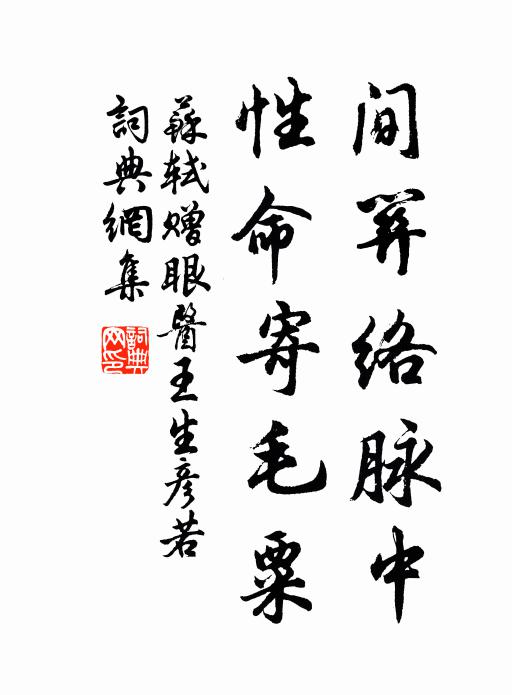 間關絡脉中
性命寄毛粟
蘇軾贈眼醫王生彥若
詞典網集
詞典网印